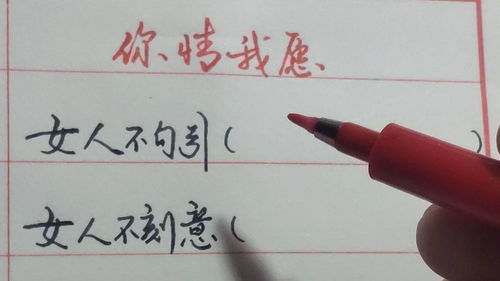 你情我愿
女人不勾引(          )
女人不刻意(